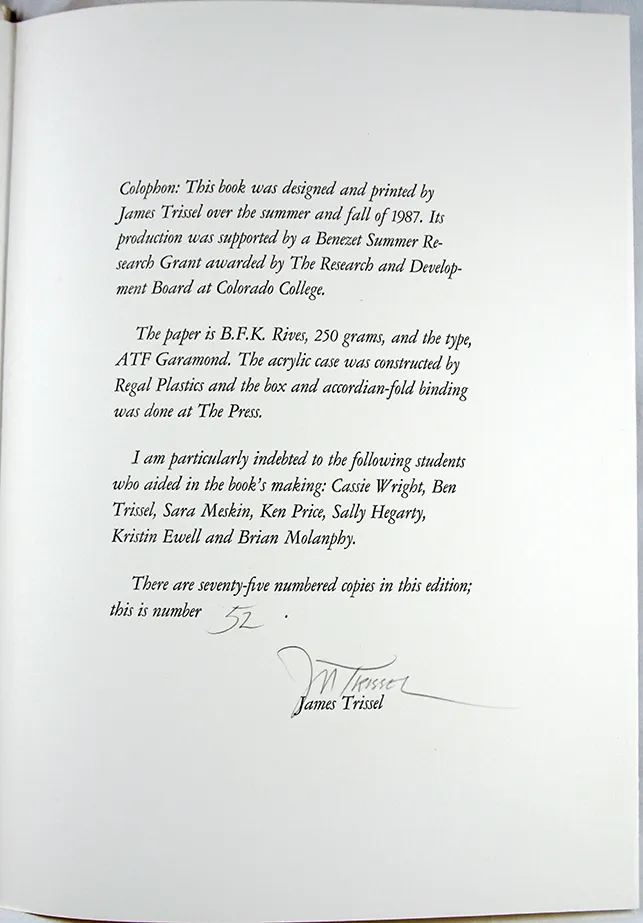 Colophon: This book was designed and printed by
James Trissel over the summer and fall of 1987. Its
production was supported by a Benezet Summer Re-
search Grant awarded by The Research and Develop-
ment Board at Colorado College.
The paper is B.F.K. Rives, 250 grams, and the type,
ATF Garamond. The acrylic case was constructed by
Regal Plastics and the box and accordian-fold binding
was done at The Press.
I am particularly indebted to the following students
who aided in the book's making: Cassie Wright, Ben
Trissel, Sara Meskin, Ken Price, Sally Hegarty,
Kristin Ewell and Brian Molanphy.
There are seventy-five numbered copies in this edition;
this is number 52 .
JM Trissel
James Trissel